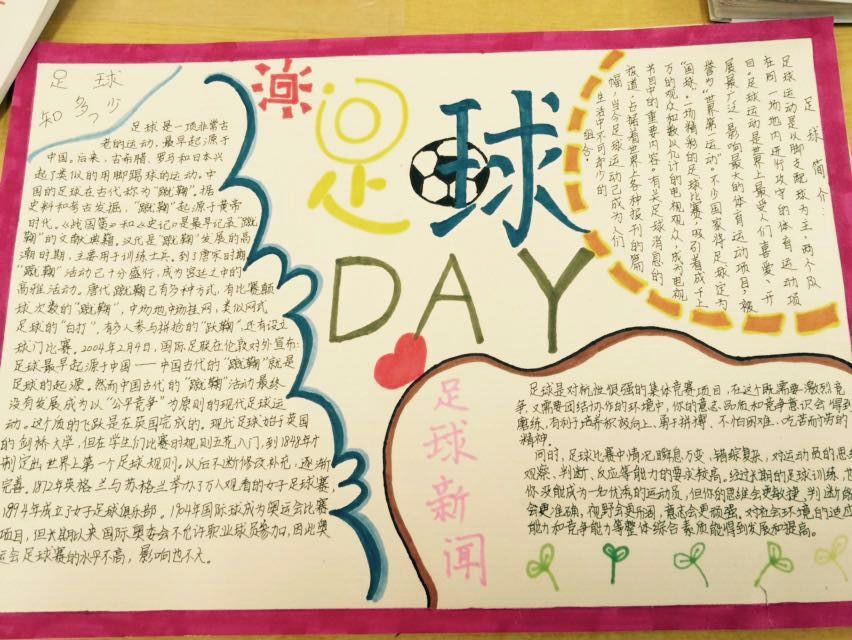 足球
知多少
足球是一项非常古
老的运动,最早起源于
中国,后来,古希腊、罗马和日本兴
起了类似的用脚踢球的运动。中
国的足球在古代称为“蹴鞠”。据
史料和考古发掘,“蹴鞠”起源于黄帝
时代。《战国策》和《史记》是最早记录“蹴
鞠”的文献典籍,汉代是“蹴鞠”发展的高
潮时期,主要用于训练士兵。到了唐宋时期,
“蹴鞠”活动已十分盛行,成为宫廷之中的
高雅活动。唐代蹴鞠已有多种方式,有比赛颠
球次数的“蹴鞠”,中场地中场挂网,类似网式
足球的“白打”,有多人参与拼抢的“跃鞠”,还有设立
球门比赛。2004年2月4日,国际足联在伦敦对外宣布:
足球最早起源于中国——中国古代的“蹴鞠”就是
足球的起源。然而中国古代的“蹴鞠”活动最终
没有发展成为以“公平竞争”为原则的现代足球运
动。这个质的飞跃是在英国完成的。现代足球始于英国
的剑桥大学,但在学生们比赛时规则五花八门,到1848年才
制定出世界上第一个足球规则。以后不断修改补充,逐渐
完善。1872年英格兰与苏格兰举办3万人观看的女子足球赛,
1894年成立了女子足球俱乐部。1904年国际球成为奥运会比赛
项目,但长期以来国际奥委会不允许职业球员参加,因此奥
运会足球赛的水平不高,影响也不大。
足球
DAY
足球简介:
足球运动是以脚支配球为主,两个队
在同一场地内进行攻守的体育运动项
目。足球运动是世界上最受人们喜爱、开
展最广泛、影响最大的体育运动项目,被
誉为“世界第一运动”。不少国家将足球定为
“国球”。一场精彩的足球比赛,吸引着成千上
万的观众和数以亿计的电视观众,成为电视
节目中的重要内容。有关足球消息的
报道,占据着世界上各种报刊的篇
幅,当今足球运动已成为人们
生活中不可却少的
组合。
足球新闻
足球是对抗性很强的集体竞赛项目,在这个既需要激烈竞
争又需要团结协作的环境中,你的意志品质和竞争意识会得到
磨练,有利于培养积极向上、勇于拼搏、不怕困难、吃苦耐劳的
精神。
同时,足球比赛中情况瞬息万变,错综复杂,对运动员的思
观察、判断、反应等能力的要求较高。经过长期的足球训练,
你没能成为一名优秀的运动员,但你的思维会更敏捷,判断能
会更准确,视野会更开阔,意志会更顽强,对社会环境的适应
能力和竞争能力等整体综合素质能得到发展和提高。